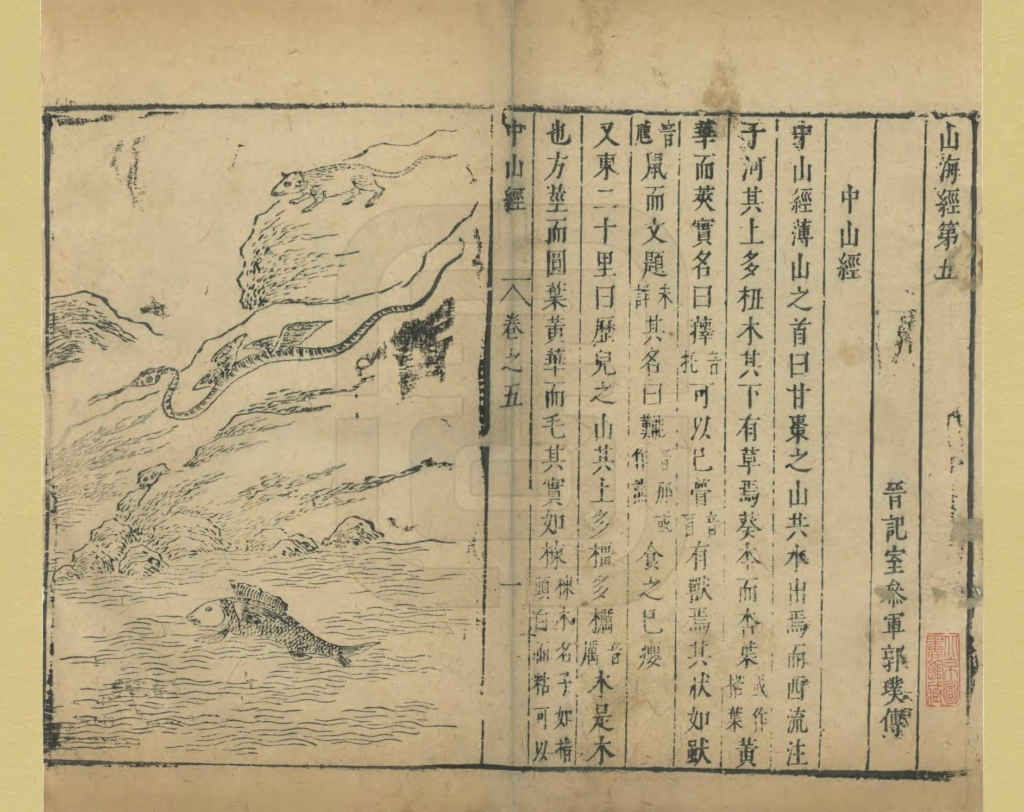 山海經第五
晉記室參軍郭璞傳
中山經
中山經薄山之首曰甘棗之山共水出焉而西流注
于河其上多杻木其下有草焉葵本而杏葉或作楉葉黃
華而莢實名曰蘀音托可以已瞢音盲有獸焉其狀如
音虺鼠而文題未詳其名曰㔮音那或作熊食之已癭
又東二十里曰歷兒之山其上多橿多櫔音厲木是木
也方莖而圓葉黃華而毛其實如楝楝木名子如指頭白而粘可以
中山經 卷之五 一